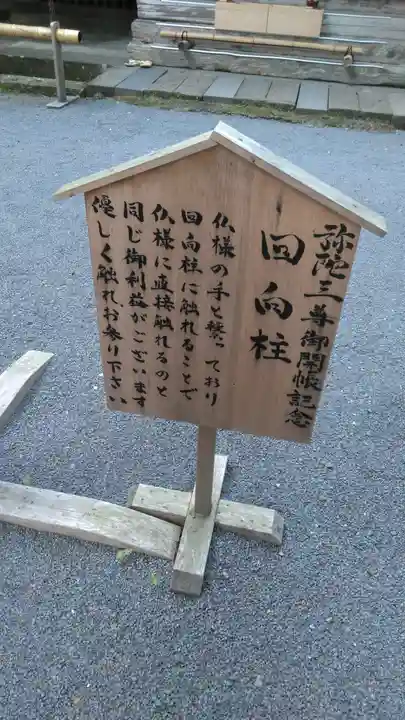 弥陀三尊御開帳記念
回向柱
仏様の手と繋っており
回向柱に触れることで
仏様に直接触れるのと
同じ御利益がございます
優しく触れお参り下さい